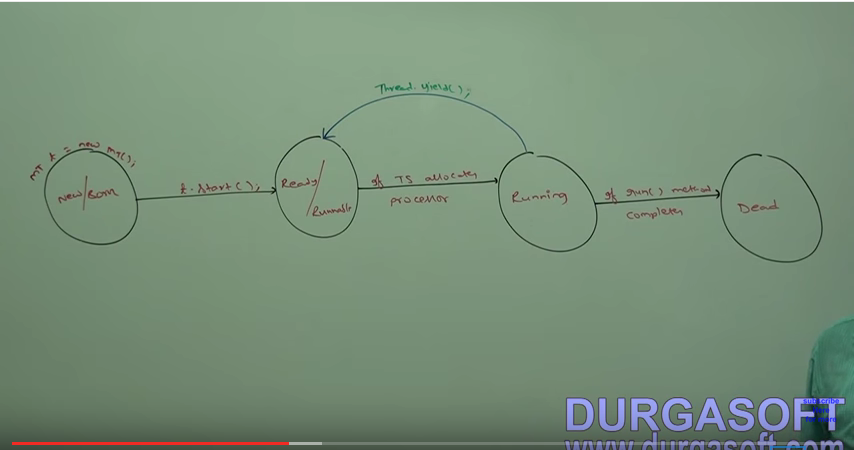 Thread.yield();
MT t = new MT();
New/Born
t.start();
Ready/
Runnable
if TS allocates
processor
Running
if run() method
completes
Dead
DURGASOFT
subscribe
www.durgasoft.com